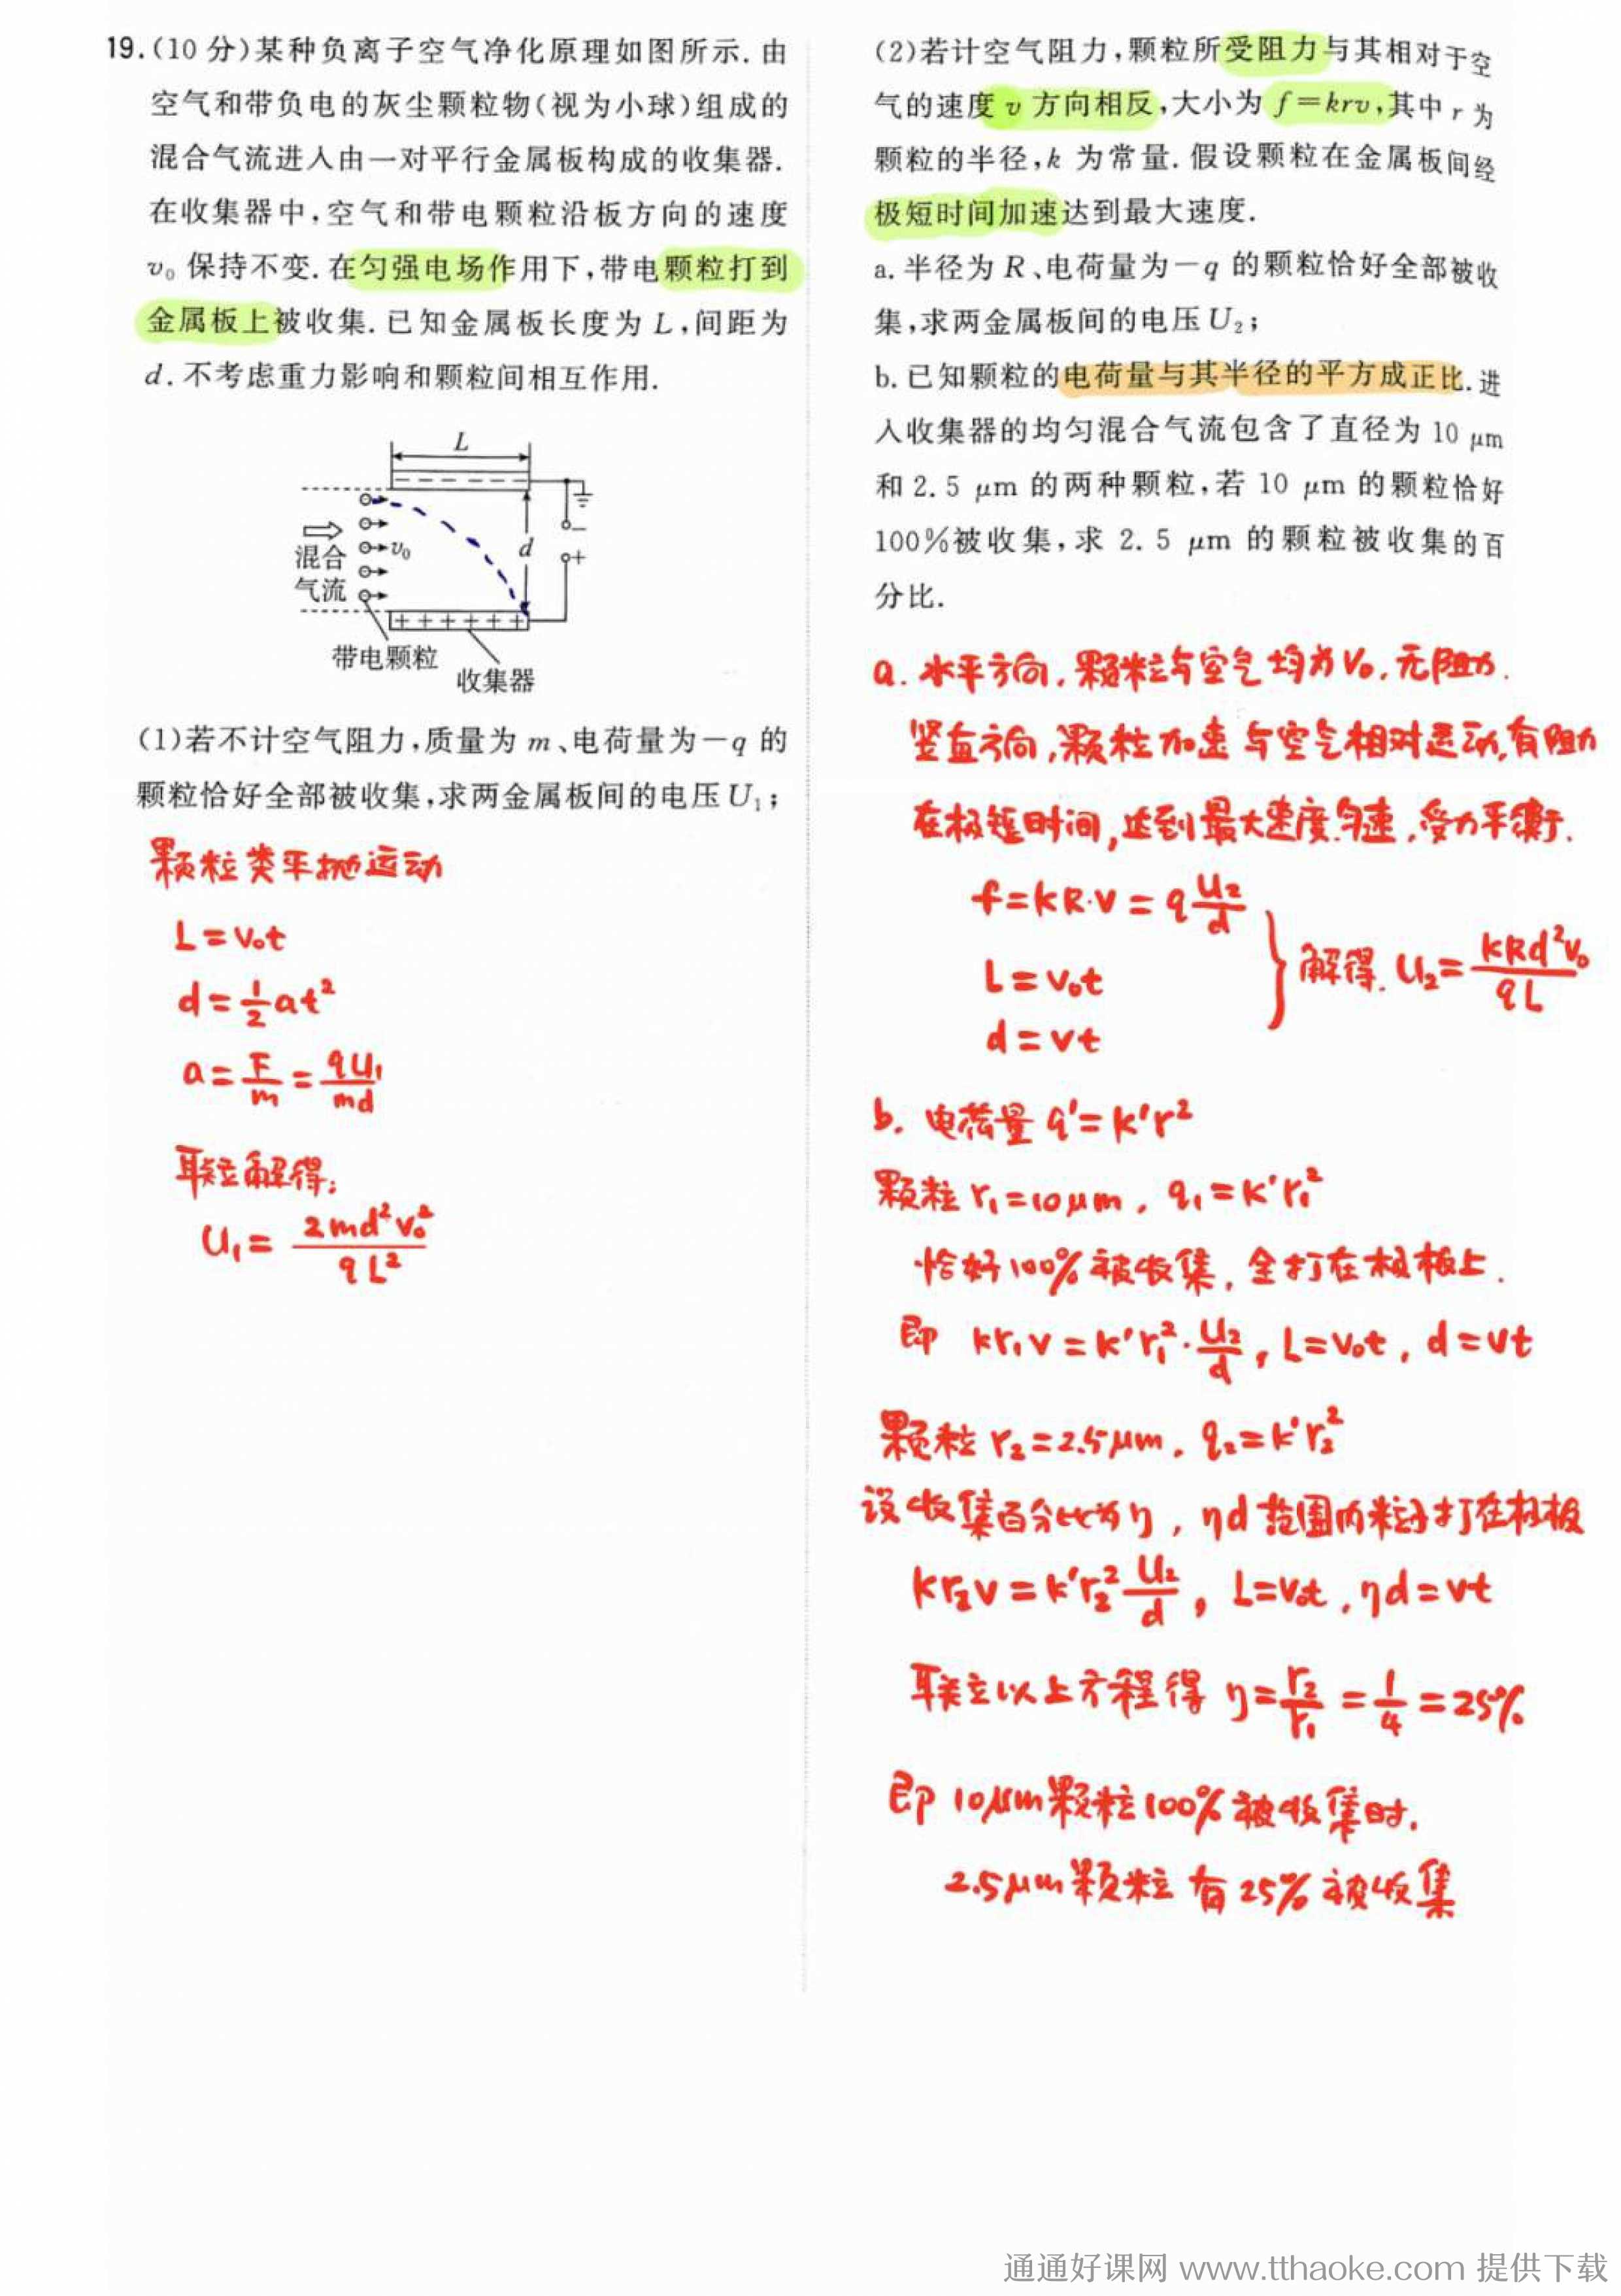 19.(10 分)某种负离子空气净化原理如图所示. 由
空气和带负电的灰尘颗粒物(视为小球)组成的
混合气流进入由一对平行金属板构成的收集器.
在收集器中,空气和带电颗粒沿板方向的速度
v₀ 保持不变. 在匀强电场作用下,带电颗粒打到
金属板上被收集. 已知金属板长度为 L,间距为
d. 不考虑重力影响和颗粒间相互作用.
L
d
v₀
混合
气流
− +
带电颗粒
收集器
(1)若不计空气阻力,质量为 m、电荷量为－q 的
颗粒恰好全部被收集,求两金属板间的电压 U₁;
颗粒类平抛运动
L=v₀t
d=½at²
a=F/m=qU₁/md
联立解得:
U₁=2md²v₀²/qL²
(2)若计空气阻力,颗粒所受阻力与其相对于空
气的速度 v 方向相反,大小为 f=krv,其中 r 为
颗粒的半径,k 为常量. 假设颗粒在金属板间经
极短时间加速达到最大速度.
a. 半径为 R、电荷量为－q 的颗粒恰好全部被收
集,求两金属板间的电压 U₂;
b. 已知颗粒的电荷量与其半径的平方成正比. 进
入收集器的均匀混合气流包含了直径为 10 μm
和 2.5 μm 的两种颗粒,若 10 μm 的颗粒恰好
100%被收集,求 2.5 μm 的颗粒被收集的百
分比.
a. 水平方向,颗粒与空气均为V₀,无阻力.
竖直方向,颗粒加速与空气相对运动,有阻力
在极短时间,达到最大速度匀速,受力平衡.
f=kR·v=qU₂/d
L=v₀t
d=vt
解得. U₂=kRd²v₀/qL
b. 电荷量 q'=k'r²
颗粒 r₁=10μm, q₁=k'r₁²
恰好100%被收集,全打在极板上.
即 kr₁v=k'r₁²·U₂/d, L=v₀t, d=vt
颗粒 r₂=2.5μm, q₂=k'r₂²
设收集百分比为η, ηd范围内粒子打在极板
kr₂v=k'r₂²U₂/d, L=v₀t, ηd=vt
联立以上方程得 η=r₂/r₁=1/4=25%
即 10μm颗粒100%被收集时,
2.5μm颗粒有25%被收集
通通好课网 www.tthaoke.com 提供下载